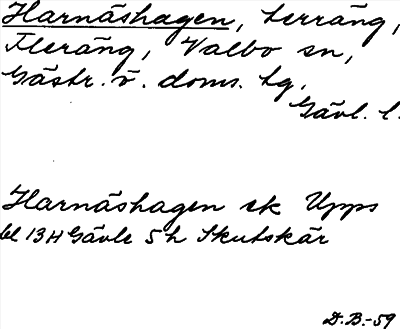 Harnäshagen, terräng,
Fleräng, Valbo sn,
Gästr. v. doms. tg.
Gävl. l.
Harnäshagen ek Upps
bl 13H Gävle 5h Skutskär
D.B.-59